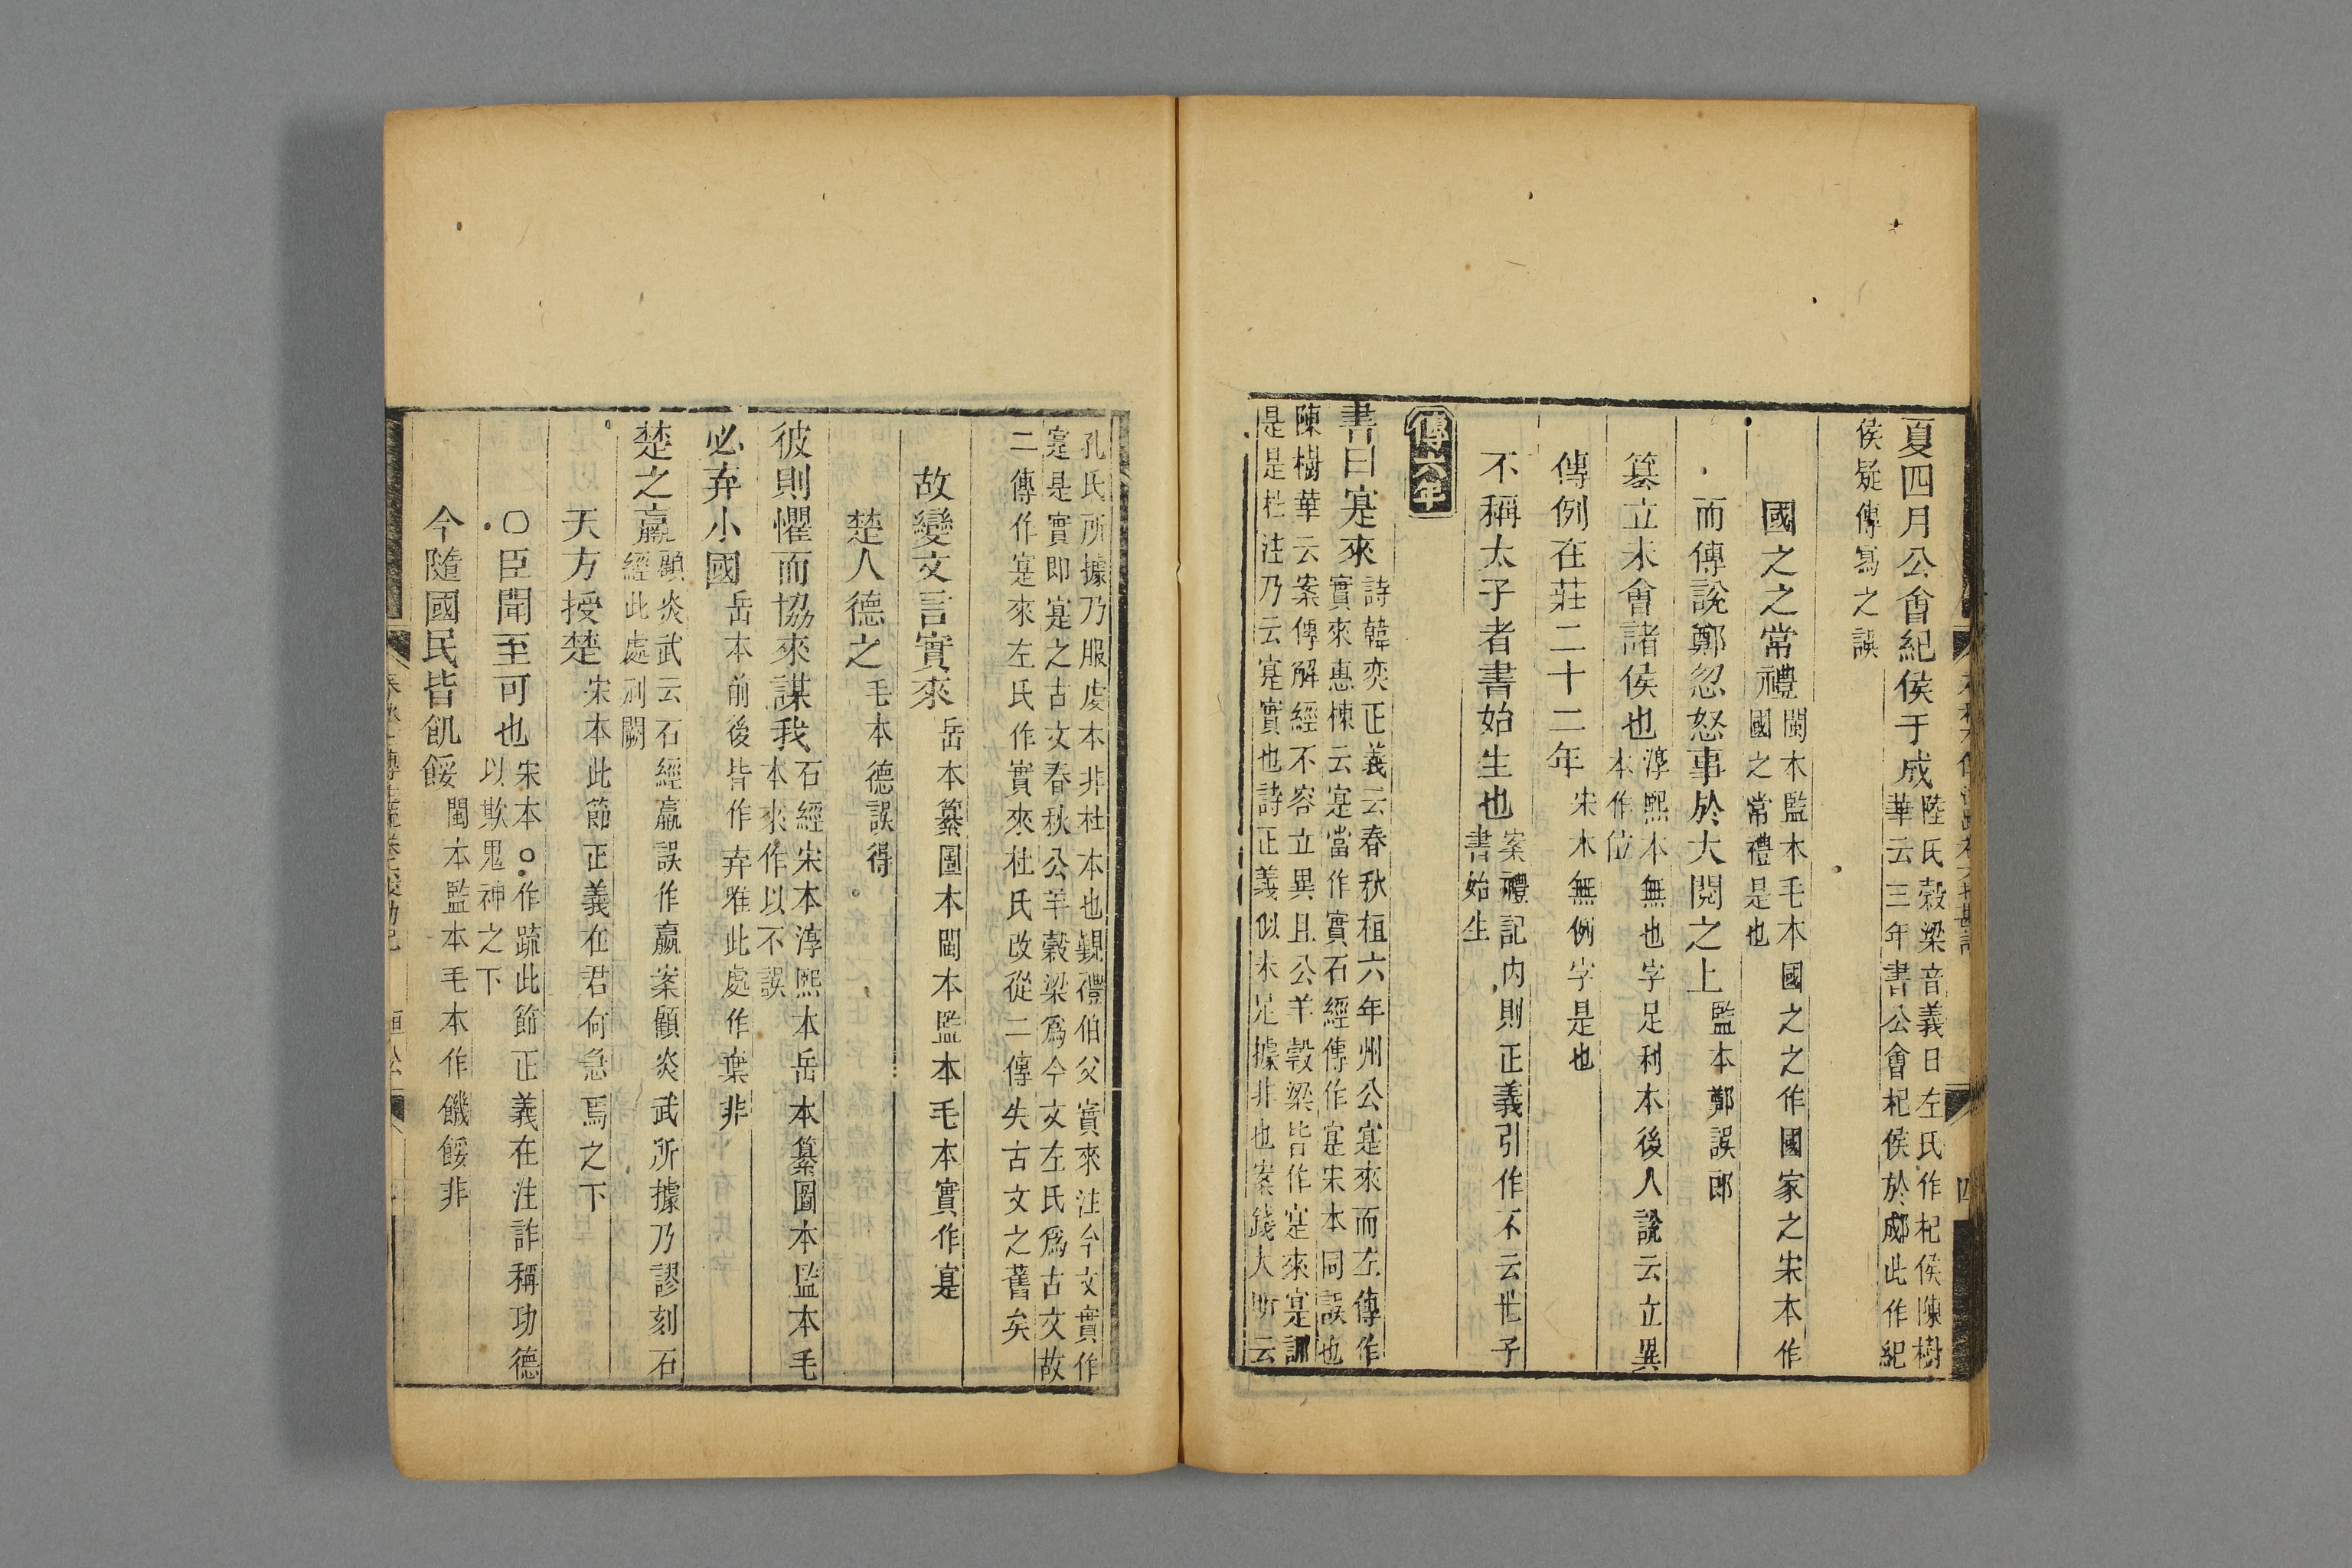 夏四月公會紀侯于成陸氏穀梁音義曰左氏作杞侯陳樹
華云三年書公會杞侯於郕此作紀
侯疑傳寫之誤
國之之常禮閩本監本毛本國之之作國家之宋本作
國之常禮是也
而傳說鄭忽怒事於大閱之上監本鄭誤郎
篡立未會諸侯也淳熙本無也字足利本後人說云立異
本作位
傳例在莊二十二年宋本無例字是也
不稱太子者書始生也案禮記內則正義引作不云世子
書始生
傳六年
書曰寔來詩韓奕正義云春秋桓六年州公寔來而左傳作
實來惠棟云寔當作實石經傳作寔宋本同誤也
陳樹華云案傳解經不容立異且公羊穀梁皆作寔來寔訓
是是杜注乃云寔實也詩正義似未足據非也案錢大昕云
孔氏所據乃服虔本非杜本也覲禮伯父實來注今文實作
寔是實即寔之古文春秋公羊穀梁爲今文左氏爲古文故
二傳作寔來左氏作實來杜氏改從二傳失古文之舊矣
故變文言實來岳本纂圖本閩本監本毛本實作寔
楚人德之毛本德誤得
彼則懼而協來謀我石經宋本淳熙本岳本纂圖本監本毛
本來作以不誤
必弃小國岳本前後皆作弃唯此處作棄非
楚之羸顧炎武云石經羸誤作嬴案顧炎武所據乃謬刻石
經此處刓闕
天方授楚宋本此節正義在君何急焉之下
○臣聞至可也宋本○作疏此節正義在注詐稱功德
以欺鬼神之下
今隨國民皆飢餒閩本監本毛本作饑餒非